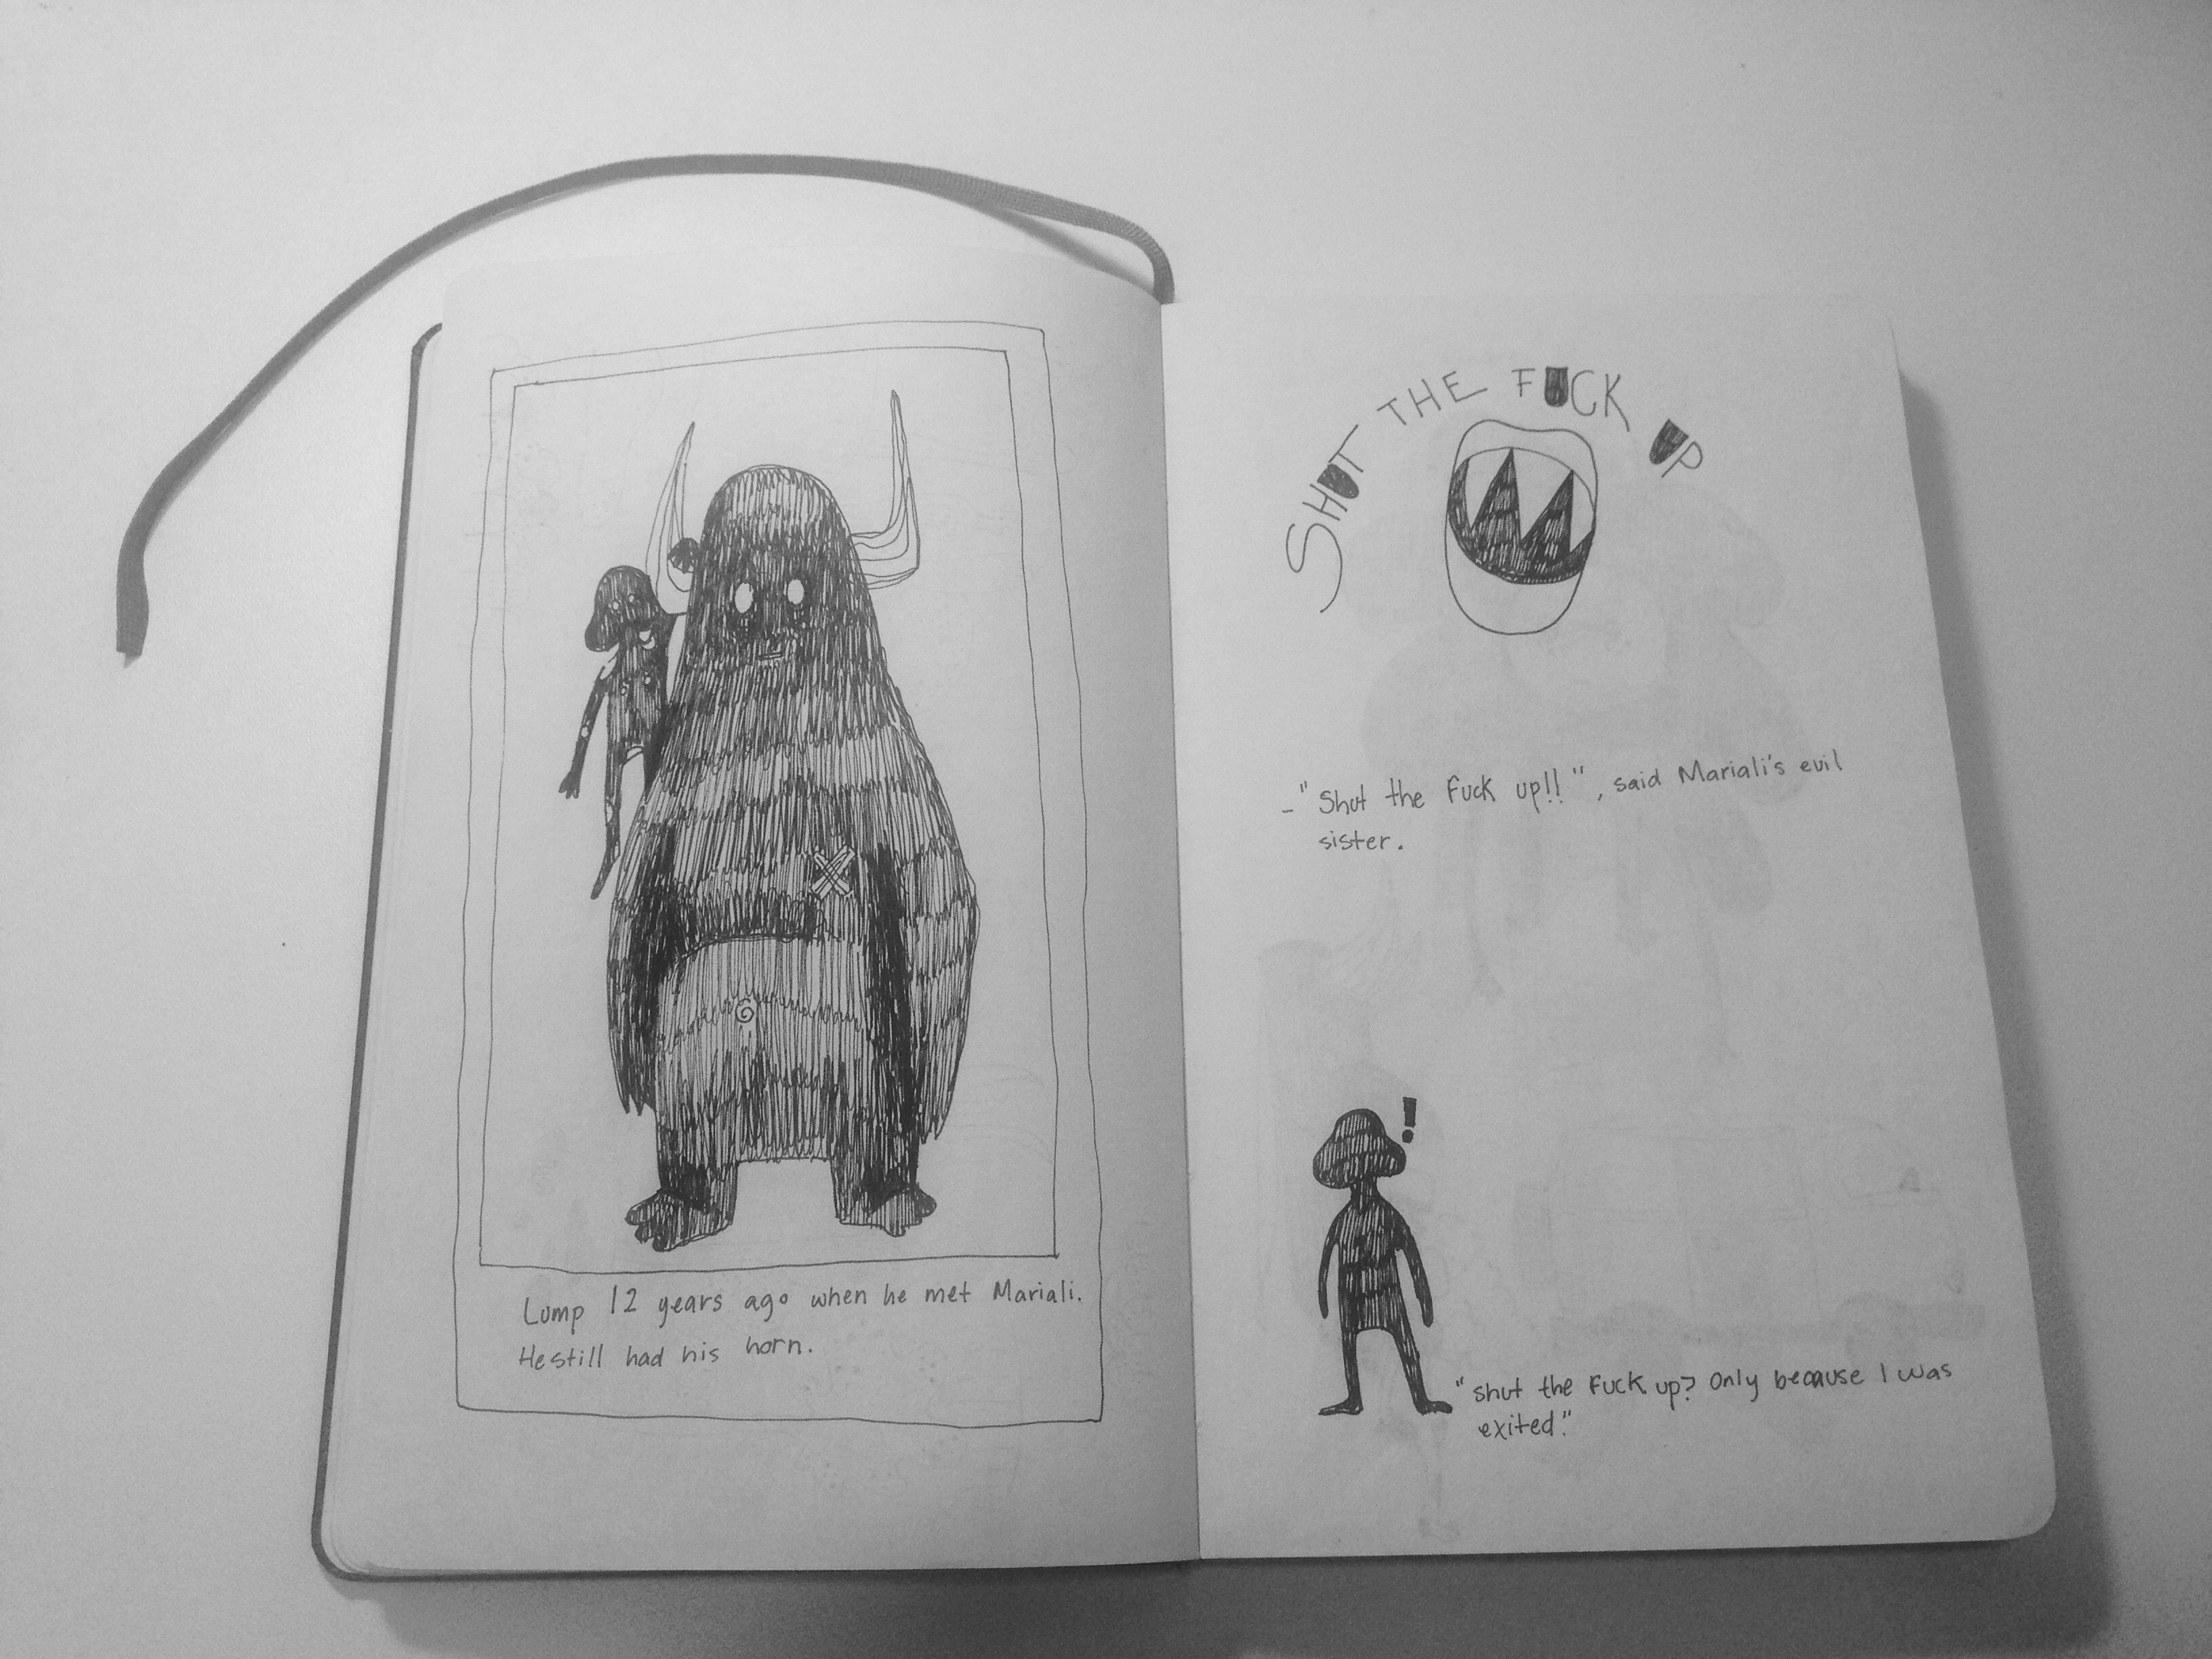 Lump 12 years ago when he met Mariali.
He still had his horn.
SHUT THE FUCK UP
_"Shut the Fuck up!!", said Mariali's evil
sister.
!
"shut the Fuck up? Only because I was
exited."